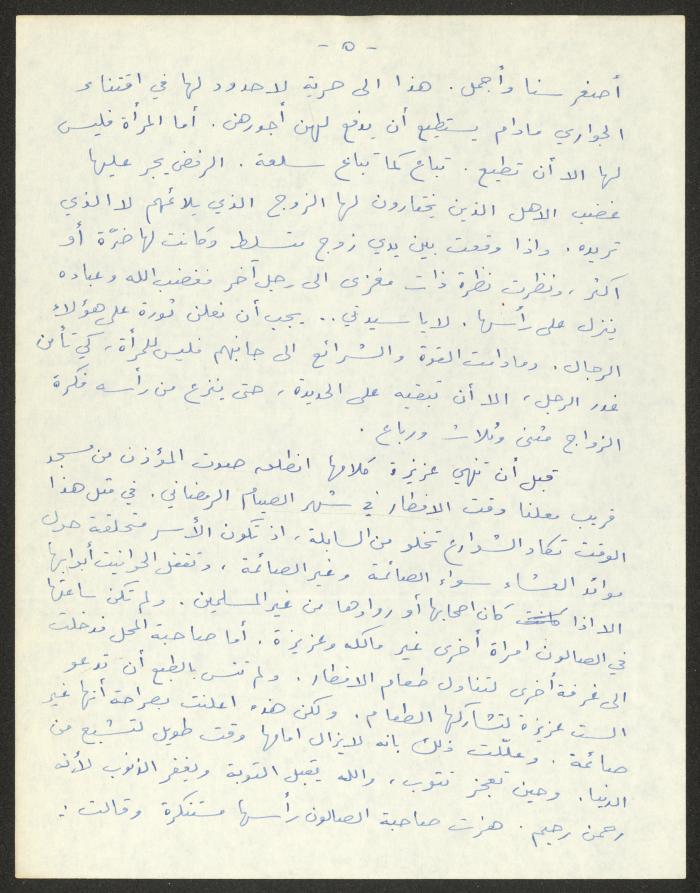 - ٥ -
أصغر سنا وأجمل. هذا الى حرية لا حدود لها في اقتناء
الجواري مادام يستطيع أن يدفع لهن أجورهن. أما المرأة فليس
لها الا أن تطيع. تباع كما تباع سلعة. الرفض يجر عليها
غضب الاهل الذين يختارون لها الزوج الذي يلائمهم لا الذي
تريده. واذا وقعت بين يدي زوج متسلط وكانت لها ضرّة أو
اكثر، ونظرت نظرة ذات مغزى الى رجل آخر فغضب الله وعباده
ينزل على رأسها. لا يا سيدتي .. يجب أن نعلن ثورة على هؤلاء
الرجال. ومادامت القوة والشرائع الى جانبهم فليس للمرأة، كي تأمن
غدر الرجل، الا أن تبقيه على الحديدة، حتى ينزع من رأسه فكرة
الزواج مثنى وثلاث ورباع.
قبل أن تنهي عزيزة كلامها انطلق صوت المؤذن من مسجد
قريب معلنا وقت الافطار في شهر الصيام الرمضاني. في مثل هذا
الوقت تكاد الشوارع تخلو من السابلة، اذ تكون الأسر متحلقة حول
موائد العشاء سواء الصائمة وغير الصائمة، وتقفل الحوانيت أبوابها
الا اذا كان اصحابها أو روادها من غير المسلمين. ولم تكن ساعتها
في الصالون امرأة أخرى غير مالكه وعزيزة. أما صاحبة المحل فدخلت
الى غرفة أخرى لتناول طعام الافطار. ولم تنس بالطبع أن تدعو
الست عزيزة لتشاركها الطعام. ولكن هذه اعلنت بصراحة أنها غير
صائمة. وعلّلت ذلك بانه لا يزال امامها وقت طويل لتشبع من
الدنيا. وحين تعجز تتوب، والله يقبل التوبة ويغفر الذنوب لأنه
رحمن رحيم. هزت صاحبة الصالون رأسها مستنكرة وقالت :